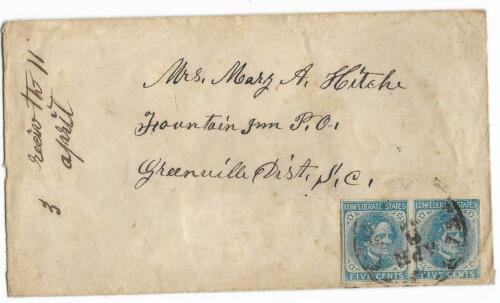 Mrs. Mary A. Hitche
Fountain Inn P.O.
Greenville Dist, S, C.
reciv the 11
april
3
CONFEDERATE STATES
FIVE CENTS
CONFEDERATE STATES
FIVE CENTS
APR